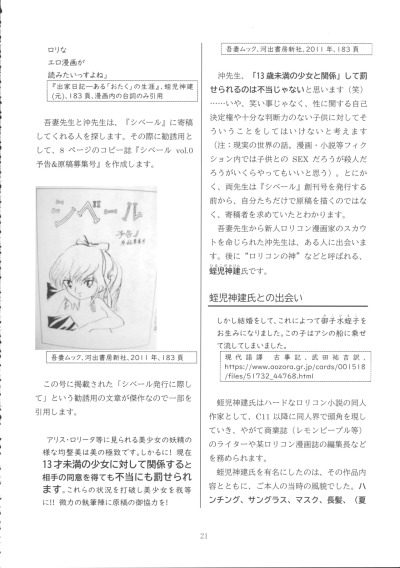 ロリな
エロ漫画が
読みたいっすよね」
『出家日記―ある「おたく」の生涯』、蛭児神建
(元)、183頁、漫画内の台詞のみ引用
吾妻先生と沖先生は、『シベール』に寄稿
してくれる人を探します。その際に勧誘用とし
て、8ページのコピー誌『シベール vol.0
予告&原稿募集号』を作成します。
シベール
予告
原稿募集号
吾妻ムック、河出書房新社、2011年、183頁
この号に掲載された「シベール発行に際し
て」という勧誘用の文章が傑作なので一部を
引用します。
アリス・ロリータ等に見られる美少女の妖精の
様な均整美は美の極致です。しかるに! 現在
13才未満の少女に対して関係すると
相手の同意を得ても不当にも罰せられ
ます。これらの状況を打破し美少女を我等
に!! 微力の執筆陣に原稿の御協力を!
吾妻ムック、河出書房新社、2011年、183頁
沖先生、「13歳未満の少女と関係」して罰
せられるのは不当じゃないと思います(笑)
……いや、笑い事じゃなく、性に関する自己
決定権や十分な判断力のない子供に対してそ
ういうことをしてはいけないと考えます
(注:現実の世界の話。漫画・小説等フィク
ション内では子供との SEX だろうが殺人だ
ろうがいくらやってもいいと思う)。とにか
く、両先生は『シベール』創刊号を発行する
前から、自分たちだけで原稿を描くのではな
く、寄稿者を求めていたとわかります。
吾妻先生から新人ロリコン漫画家のスカウ
トを命じられた沖先生は、ある人に出会いま
す。後に“ロリコンの神”などと呼ばれる、
蛭児神建氏です。
蛭児神建氏との出会い
しかし結婚をして、これによつて御子水蛭子を
お生みになりました。この子はアシの船に乗せ
て流してしまいました。
現代語譯 古事記、武田祐吉訳、
https://www.aozora.gr.jp/cards/001518
/files/51732_44768.html
蛭児神建氏はハードなロリコン小説の同人
作家として、C11以降に同人界で頭角を現し
ていき、やがて商業誌(レモンピープル等)
のライターや某ロリコン漫画誌の編集長など
を務められます。
蛭児神建氏を有名にしたのは、その作品内
容とともに、ご本人の当時の風貌でした。ハ
ンチング、サングラス、マスク、長髪、(夏
21